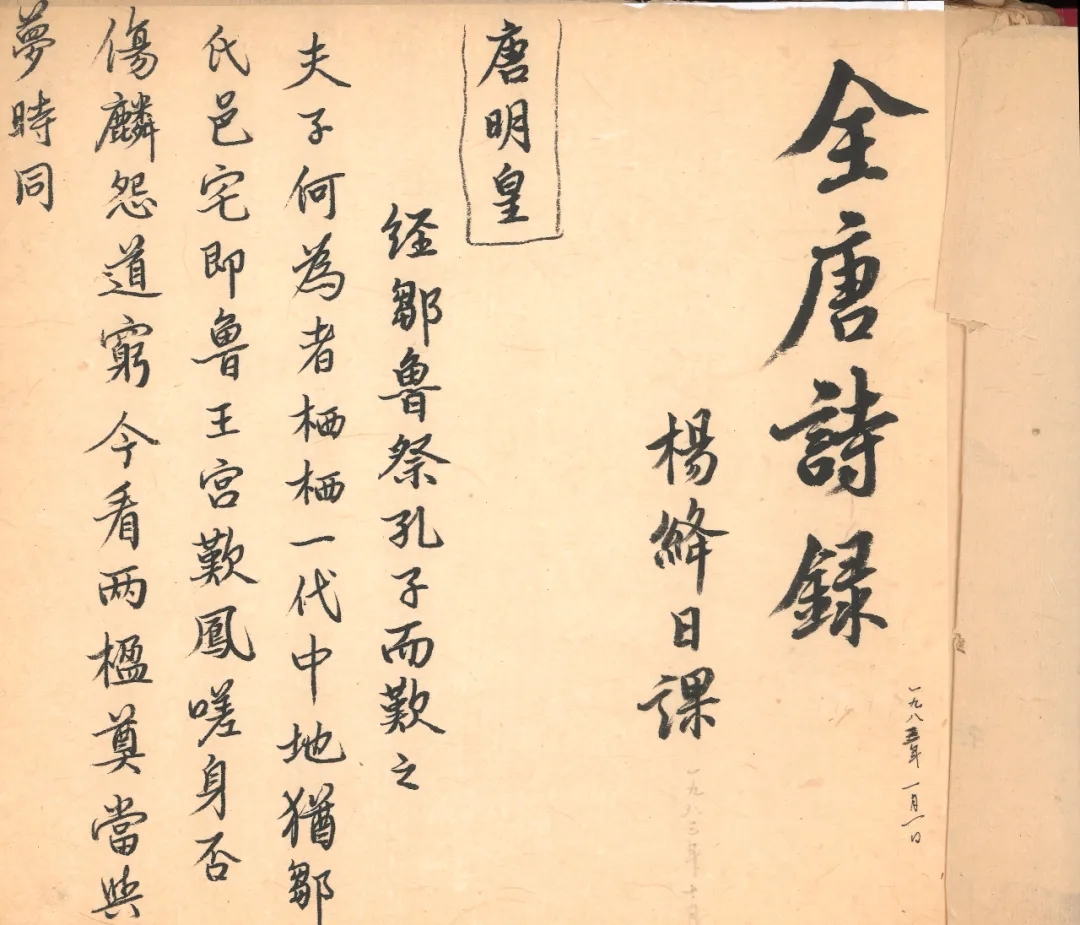 全唐詩録
一九八五年 一月一日
楊絳日課
一九八三年十月
唐明皇
経鄒魯祭孔子而歎之
夫子何為者栖栖一代中地猶鄒
氏邑宅即魯王宫歎鳳嗟身否
傷麟怨道窮今看两楹奠當與
夢時同